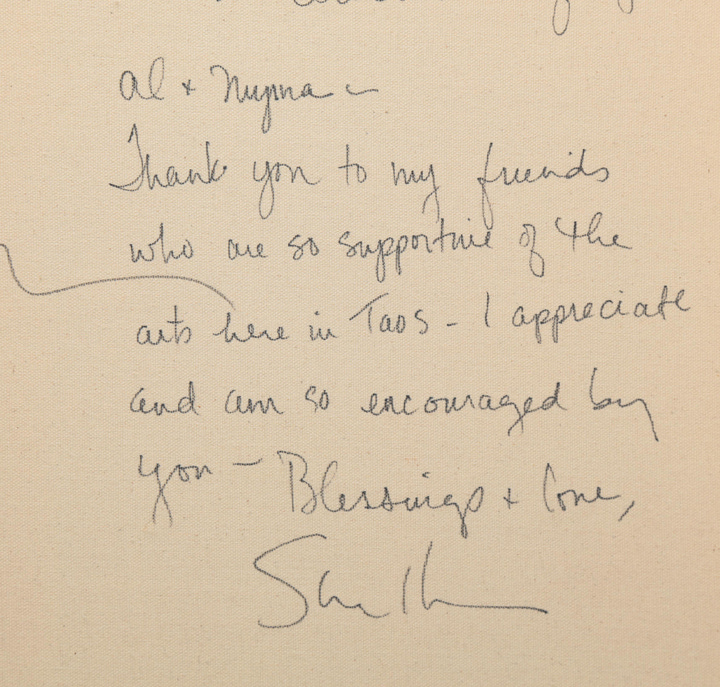 Al +
Thank you to my friends
who are so supportive of the
arts here in Taos - I appreciate
and am so encouraged by
you - Blessings + Love,